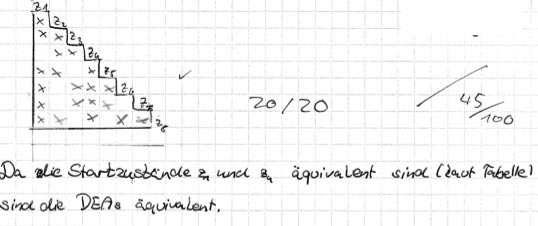 z1
x z2
x x z3
x x z4
x x x z5
x x x x z6
x x x z7
x x x x z8
✓
20/20
45/100
Da die Startzustände z1 und z4 äquivalent sind (laut Tabelle)
sind die DEAs äquivalent.